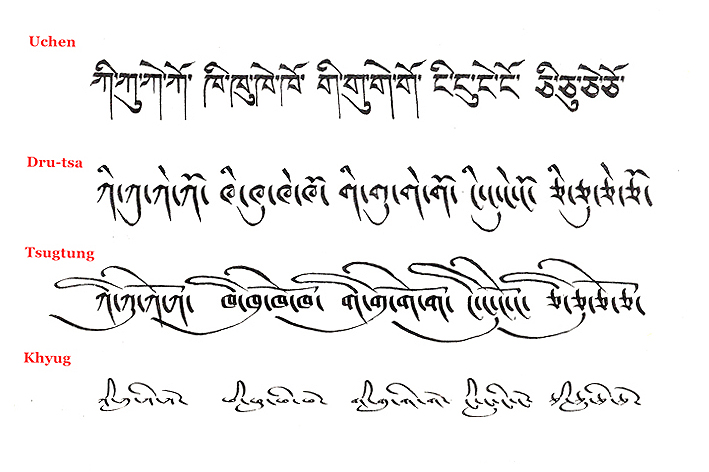 Uchen
ཀི་ཀུ་ཀེ་ཀོ་ ཁི་ཁུ་ཁེ་ཁོ་ གི་གུ་གེ་གོ་ ངི་ངུ་ངེ་ངོ་ ཅི་ཅུ་ཅེ་ཅོ་
Dru-tsa
ཀི་ཀུ་ཀེ་ཀོ། ཁི་ཁུ་ཁེ་ཁོ། གི་གུ་གེ་གོ། ངི་ངུ་ངེ་ངོ། ཅི་ཅུ་ཅེ་ཅོ།
Tsugtung
ཀི་ཀུ་ཀེ་ཀོ། ཁི་ཁུ་ཁེ་ཁོ། གི་གུ་གེ་གོ། ངི་ངུ་ངེ་ངོ། ཅི་ཅུ་ཅེ་ཅོ།
Khyug